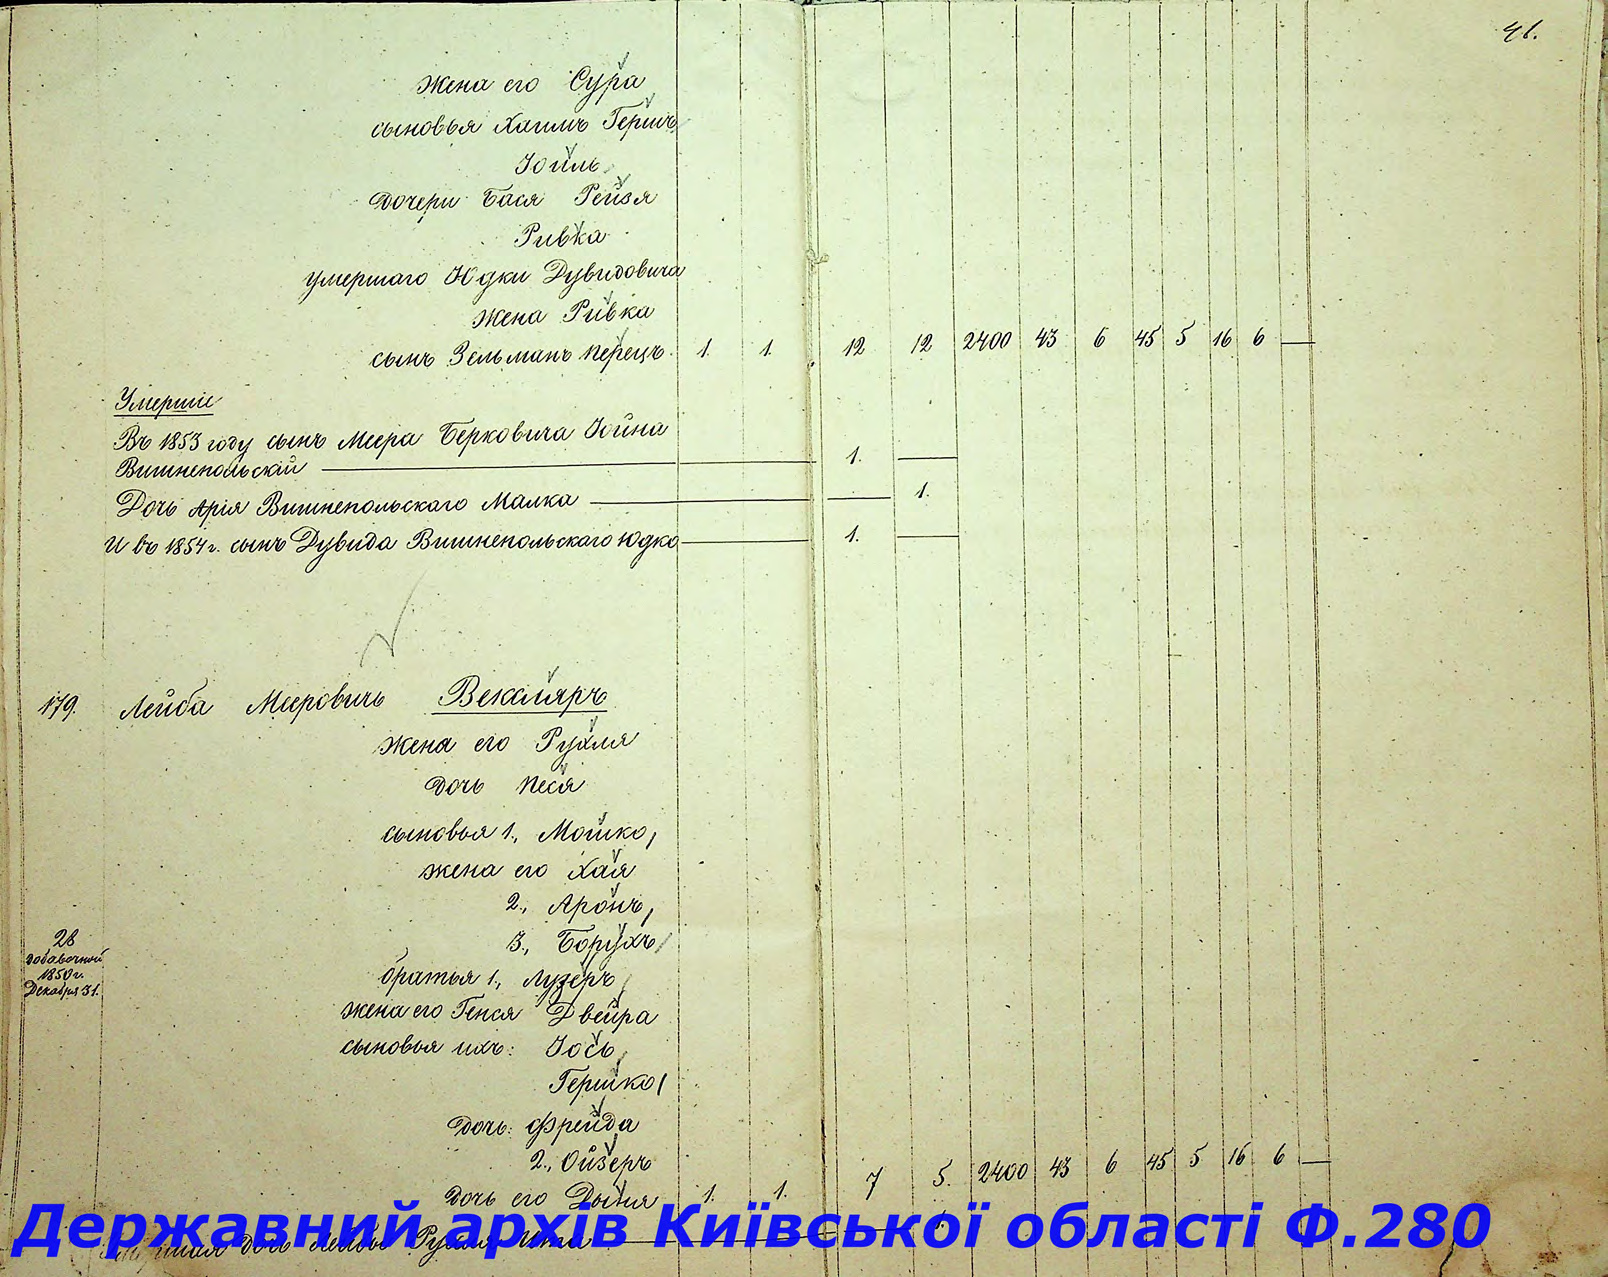 41.
жена его Сура
сыновья Хаимъ Гершъ
Іойль
дочери Бася Рейзя
Ривка
умершаго Юдки Дувидовича
жена Ривка
сынъ Зельманъ Перецъ 1. 1. 12 12 2400 43 6 45 5 16 6 —
Умершіе
Въ 1853 году сынъ Меера Берковича Іойна
Вишнепольскій — 1. —
Дочь Арія Вишнепольскаго Малка — — 1.
И въ 1854 г. сынъ Дувида Вишнепольскаго Юдко — 1. —
179. Лейба Мееровичъ Векляръ
жена его Рухля
дочь Песя
сыновья 1., Мошко,
жена его Хая
2., Аронъ,
3., Борухъ,
28
добавочной
1850 г.
Декабря 31.
братья 1., Лузеръ,
жена его Генся Двейра
сыновья ихъ: Іось,
Гершко,
дочь: Фрейда
2., Ойзеръ
дочь его Дыня 1. 1. 7 5. 2400 43 6 45 5 16 6 —
дочь Лейбы
Державний архів Київської області Ф.280